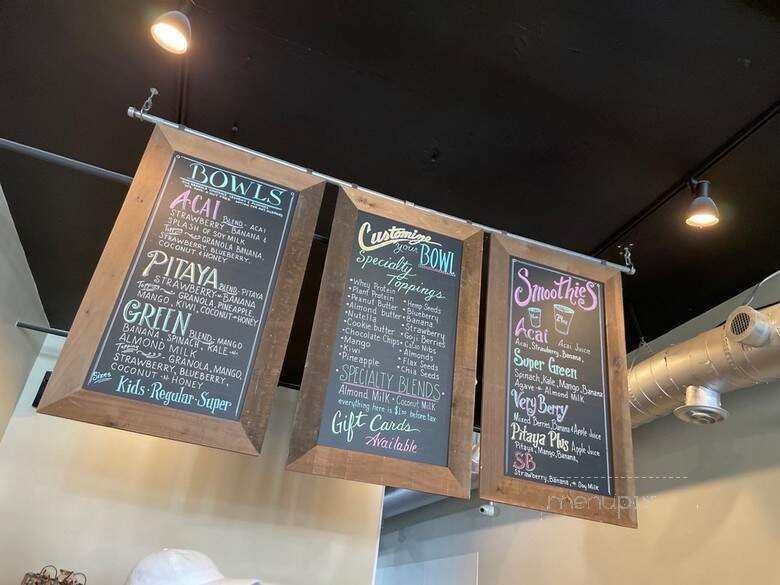 BOWLS
ACAI BLEND - ACAI
STRAWBERRY, BANANA &
SPLASH OF SOY MILK
Toppings GRANOLA, BANANA,
STRAWBERRY, BLUEBERRY,
COCONUT & HONEY
PITAYA BLEND - PITAYA
STRAWBERRY & BANANA
Toppings GRANOLA, PINEAPPLE,
MANGO, KIWI, COCONUT & HONEY
GREEN BLEND - MANGO
BANANA, SPINACH, KALE &
ALMOND MILK
Toppings GRANOLA, MANGO,
STRAWBERRY, BLUEBERRY,
COCONUT & HONEY
Sizes
Kids - Regular - Super
Customize
your BOWL
Specialty
Toppings
• Whey Protein
• Plant Protein
• Peanut Butter
• Almond butter
• Nutella
• Cookie butter
• Chocolate Chips
• Mango
• Kiwi
• Pineapple
• Hemp Seeds
• Blueberry
• Banana
• Strawberry
• Goji Berries
• Cacao Nibs
• Almonds
• Flax Seeds
• Chia Seeds
SPECIALTY BLENDS
Almond Milk • Coconut Milk
everything here is $1.00 before tax
Gift Cards
Available
Smoothies
24oz
Acai Acai Juice
Acai, Strawberry, Banana,
Super Green
Spinach, Kale, Mango, Banana
Agave + Almond Milk
Very Berry
Mixed Berries, Banana & Apple Juice
Pitaya Plus Apple Juice
Pitaya, Mango, Banana,
SB
Strawberry, Banana, + Soy Milk
menupix